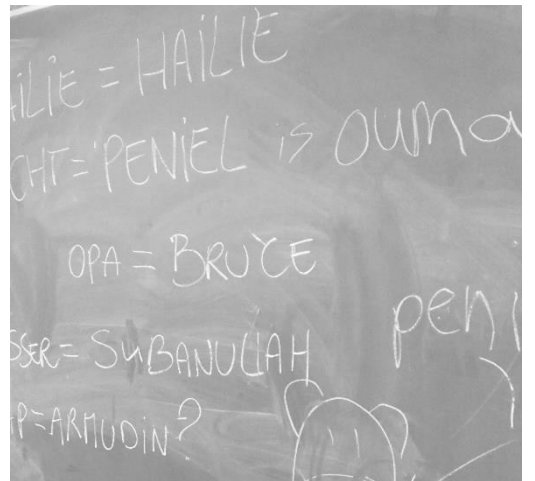 ILIE = HAILIE
CHT = PENIEL is ouma
OPA = BRUCE
peni
SSER = SUBANULLAH
P = ARMUDIN?